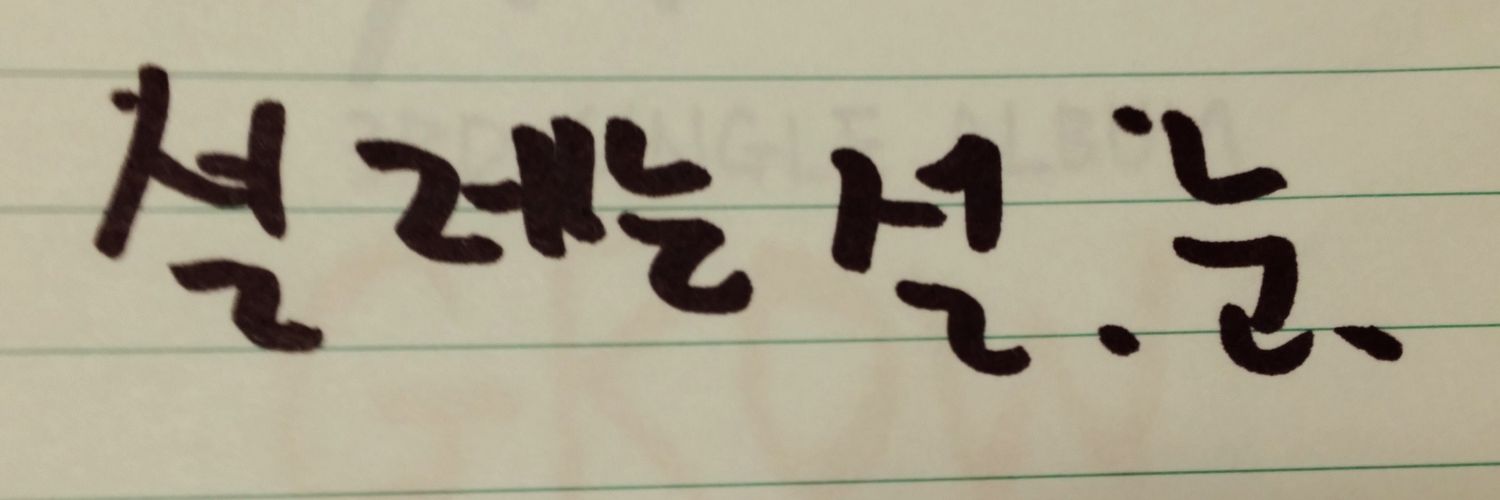 설레는 설.눈.